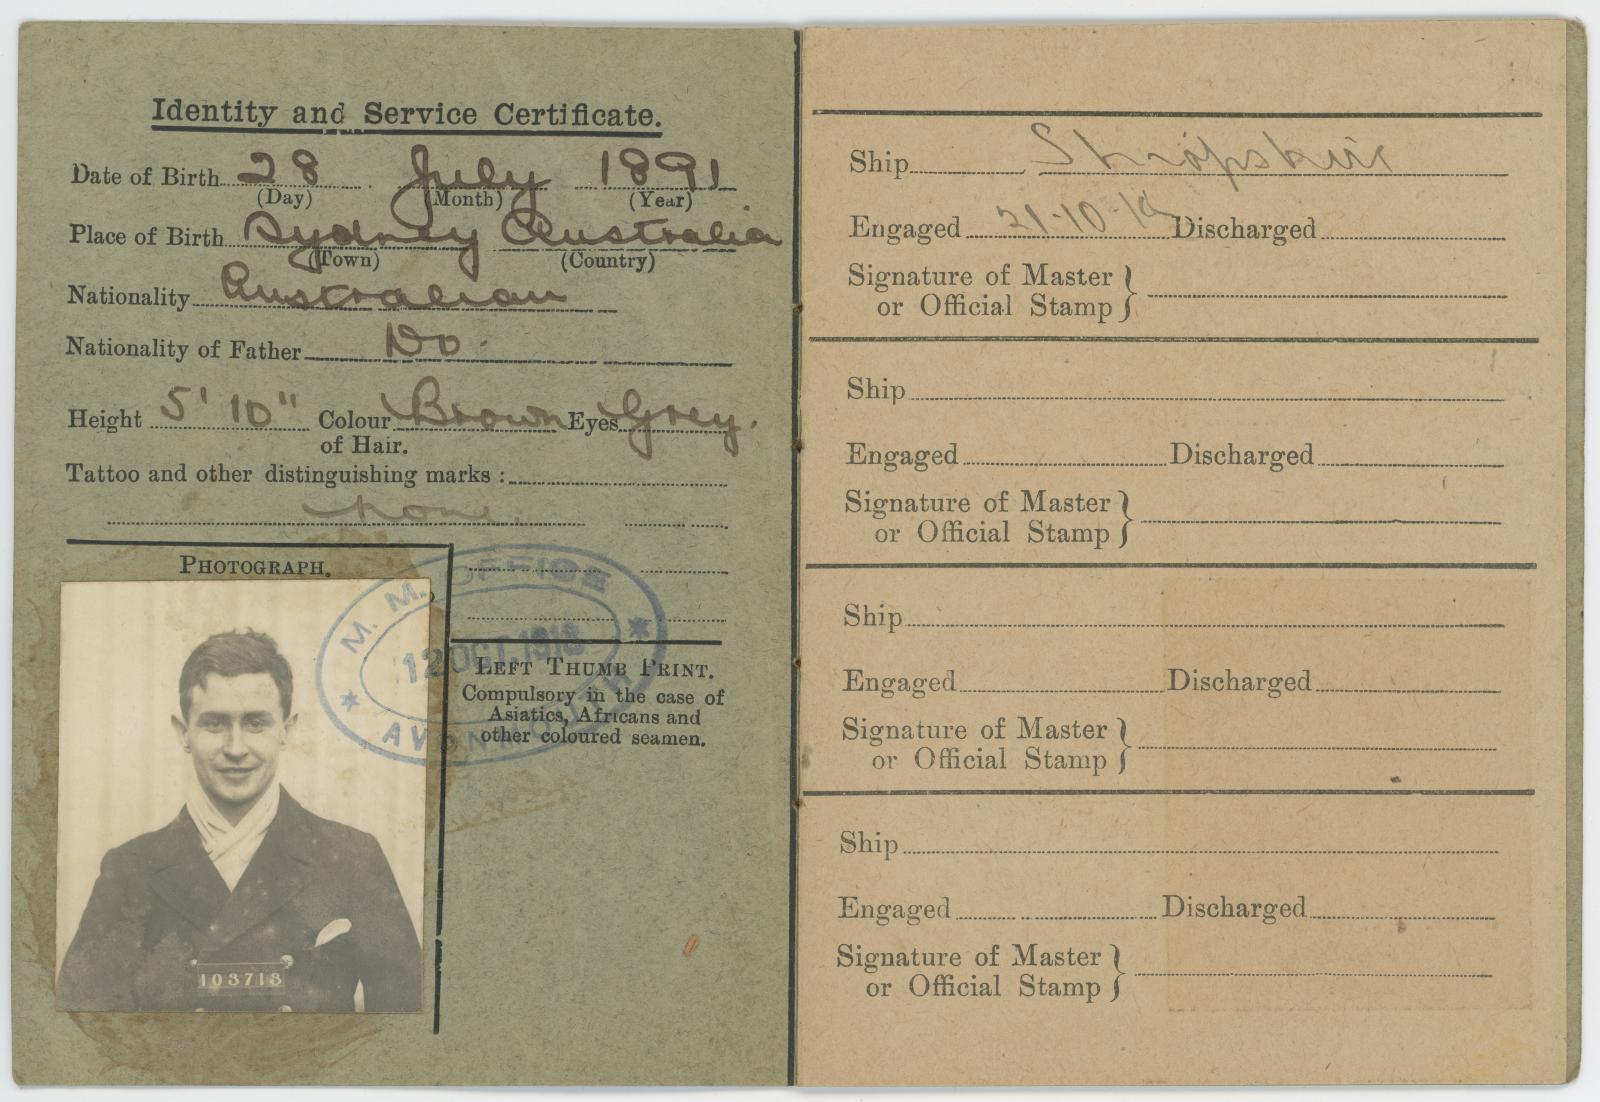 Identity and Service Certificate.
Date of Birth 28 July 1891
(Day) (Month) (Year)
Place of Birth Sydney Australia
(Town) (Country)
Nationality Australian
Nationality of Father Do.
Height 5' 10" Colour Brown Eyes Grey.
of Hair.
Tattoo and other distinguishing marks :
none
PHOTOGRAPH.
M. M. OFFICE
12 OCT. 1918
AVONMOUTH
LEFT THUMB PRINT.
Compulsory in the case of
Asiatics, Africans and
other coloured seamen.
103713
Ship Shropshire
Engaged 21-10-18 Discharged
Signature of Master
or Official Stamp
Ship
Engaged Discharged
Signature of Master
or Official Stamp
Ship
Engaged Discharged
Signature of Master
or Official Stamp
Ship
Engaged Discharged
Signature of Master
or Official Stamp